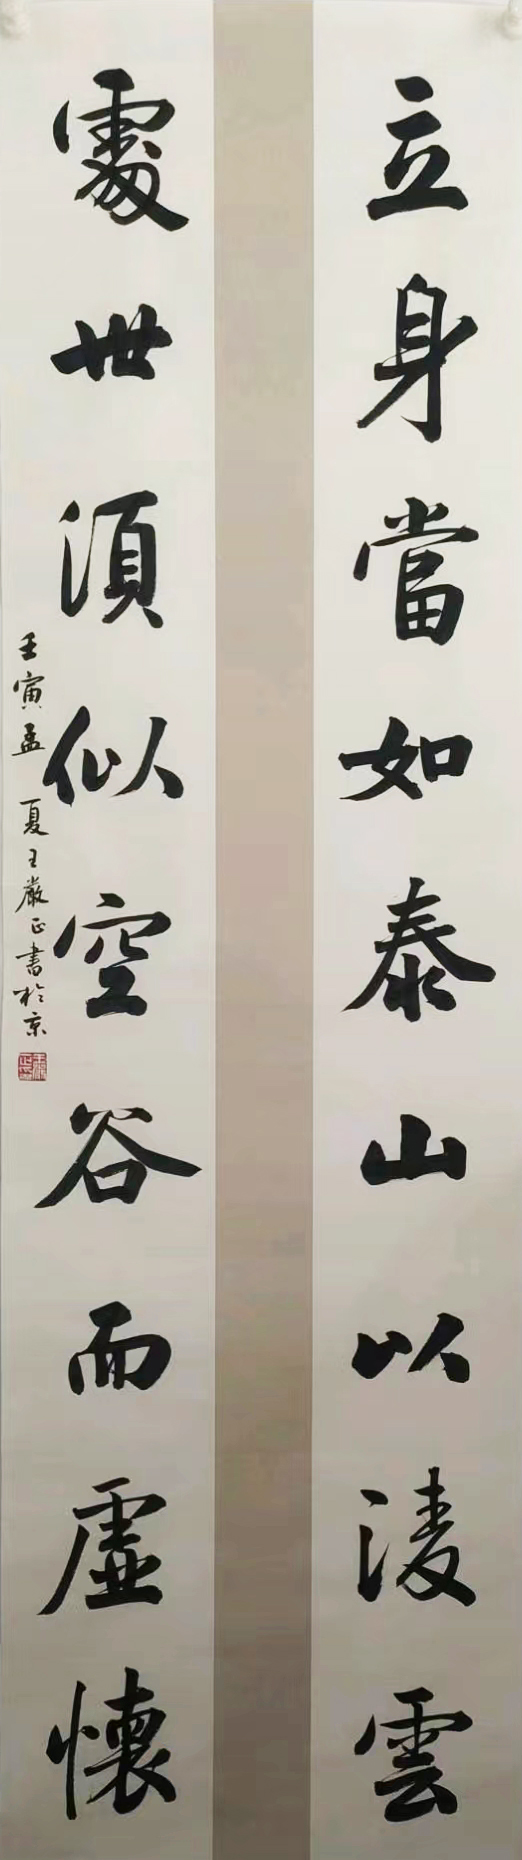 立身當如泰山以淩雲
處世須似空谷而虛懷
壬寅孟夏王嚴正書於京